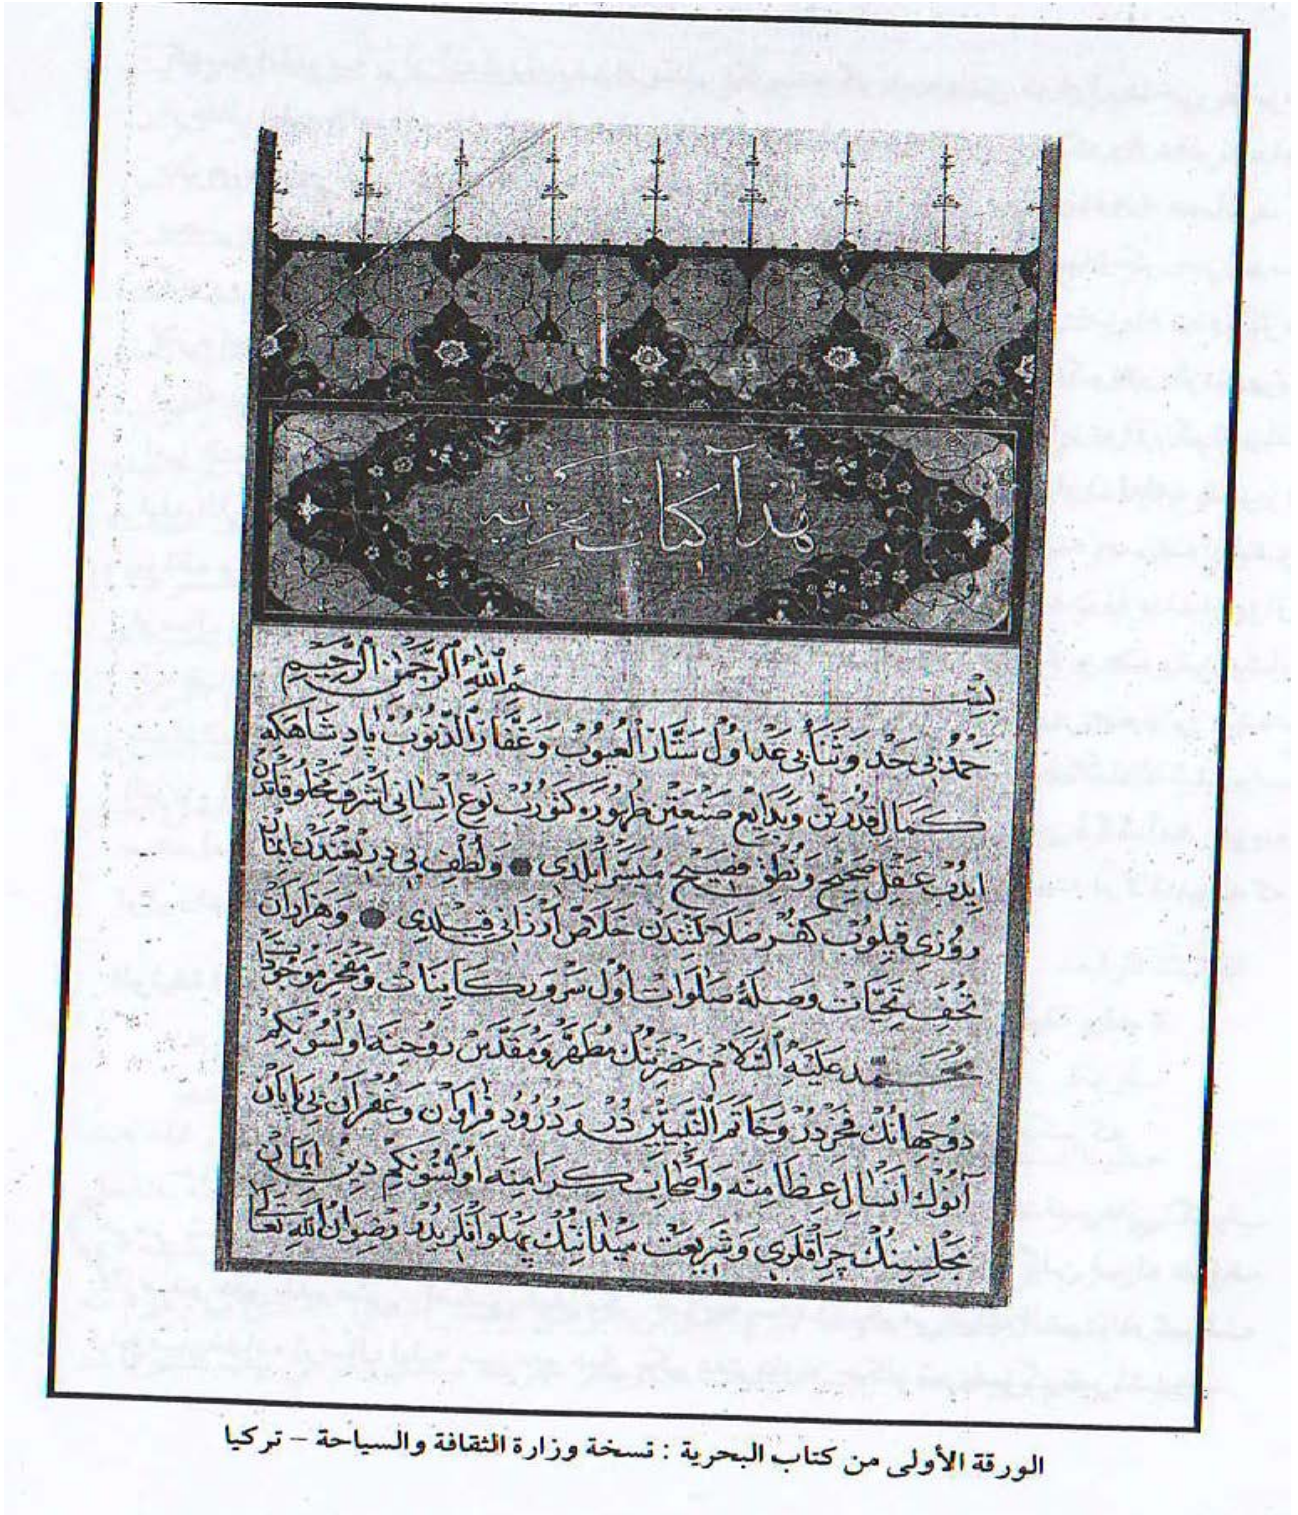 هذا كتاب بحريه
بسم الله الرحمن الرحيم
حمد بی حد و ثنأ بی عد اول ستار العيوب و غفار الذنوب پادشاهكه
كمال قدرتن و بدايع صنعتن ظهوره كتورب نوع انسانی اشرف مخلوقاتدن
ايدب عقل صحيح و نطق فصيح ميسر ايلدی ولطف بی دريغندن ايمان
روزی قيلوب كفر ضلالتندن خلاص ارزانی قيلدی و هزاران
تحف تحيات وصله صلوات اول سرور كاينات و مفخر موجودات
محمد عليه السلام حضرتنك مطهر و مقدس روحنه اولسونكم
دو جهانك فخردر و خاتم النبيين در و درود فراوان و غفران بی پايان
آنوك انسال عظامنه و اصحاب كرامنه اولسونكم دين ايمان
مجلسنك چراقلری و شريعت ميدانينك پهلوانلريدر رضوان الله تعالى
الورقة الأولى من كتاب البحرية : نسخة وزارة الثقافة والسياحة – تركيا